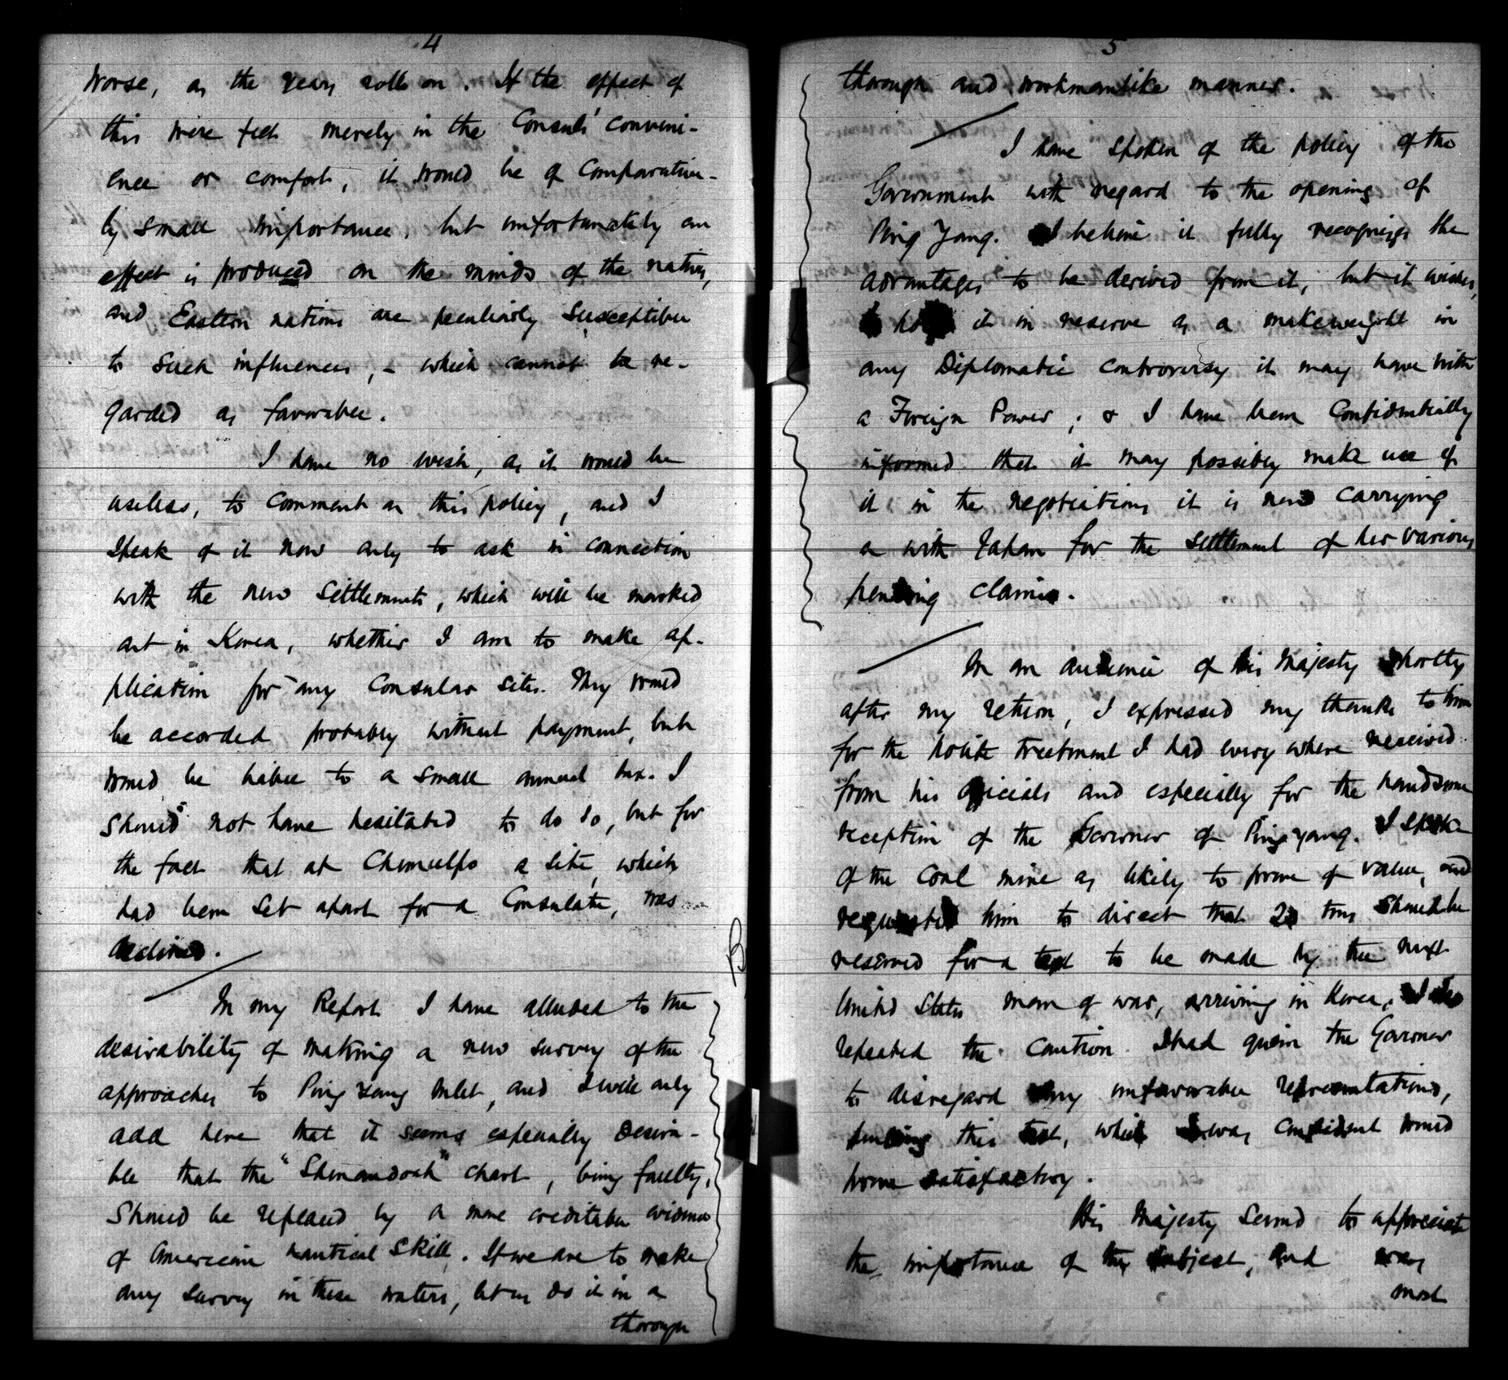 4
worse, as the years roll on. If the effect of
this were felt merely in the Consuls' conveni-
ence or comfort, it would be of comparative-
ly small importance, but unfortunately an
effect is produced on the minds of the natives,
and Eastern nations are peculiarly susceptible
to such influences, - which cannot be re-
garded as favorable.
I have no wish, as it would be
useless, to comment on this policy, and I
speak of it now only to ask in connection
with the new Settlements, which will be marked
out in Korea, whether I am to make ap-
plication for any Consular sites. They would
be accorded probably without payment, but
would be liable to a small annual tax. I
should not have hesitated to do so, but for
the fact that at Chemulpo a site, which
had been set apart for a Consulate, was
declined.
In my Report I have alluded to the
desirability of making a new survey of the
approaches to Ping Yang Inlet, and I will only
add here that it seems especially desira-
ble that the "Shenandoah" chart, being faulty,
should be replaced by a more creditable evidence
of American nautical skill. If we are to make
any survey in these waters, let us do it in a
thorough
B
5
thorough and workmanlike manner.
I have spoken of the policy of the
Government with regard to the opening of
Ping Yang. I believe it fully recognizes the
advantages to be derived from it, but it wishes
to hold it in reserve as a makeweight in
any Diplomatic controversy it may have with
a Foreign Power; & I have been Confidentially
informed that it may possibly make use of
it in the negotiations it is now carrying
on with Japan for the settlement of her various
pending claims.
In an audience of his Majesty shortly
after my return, I expressed my thanks to him
for the polite treatment I had every where received
from his officials and especially for the handsome
reception of the Governor of Ping yang. I spoke
of the Coal mine as likely to prove of value, and
requested him to direct that 20 tons should be
reserved for a test to be made by the next
United States man of war, arriving in Korea. I also
repeated the caution I had given the Governor
to disregard any unfavorable representations,
pending this test, which I was confident would
prove satisfactory.
His Majesty seemed to appreciate
the importance of the subject, and was
most